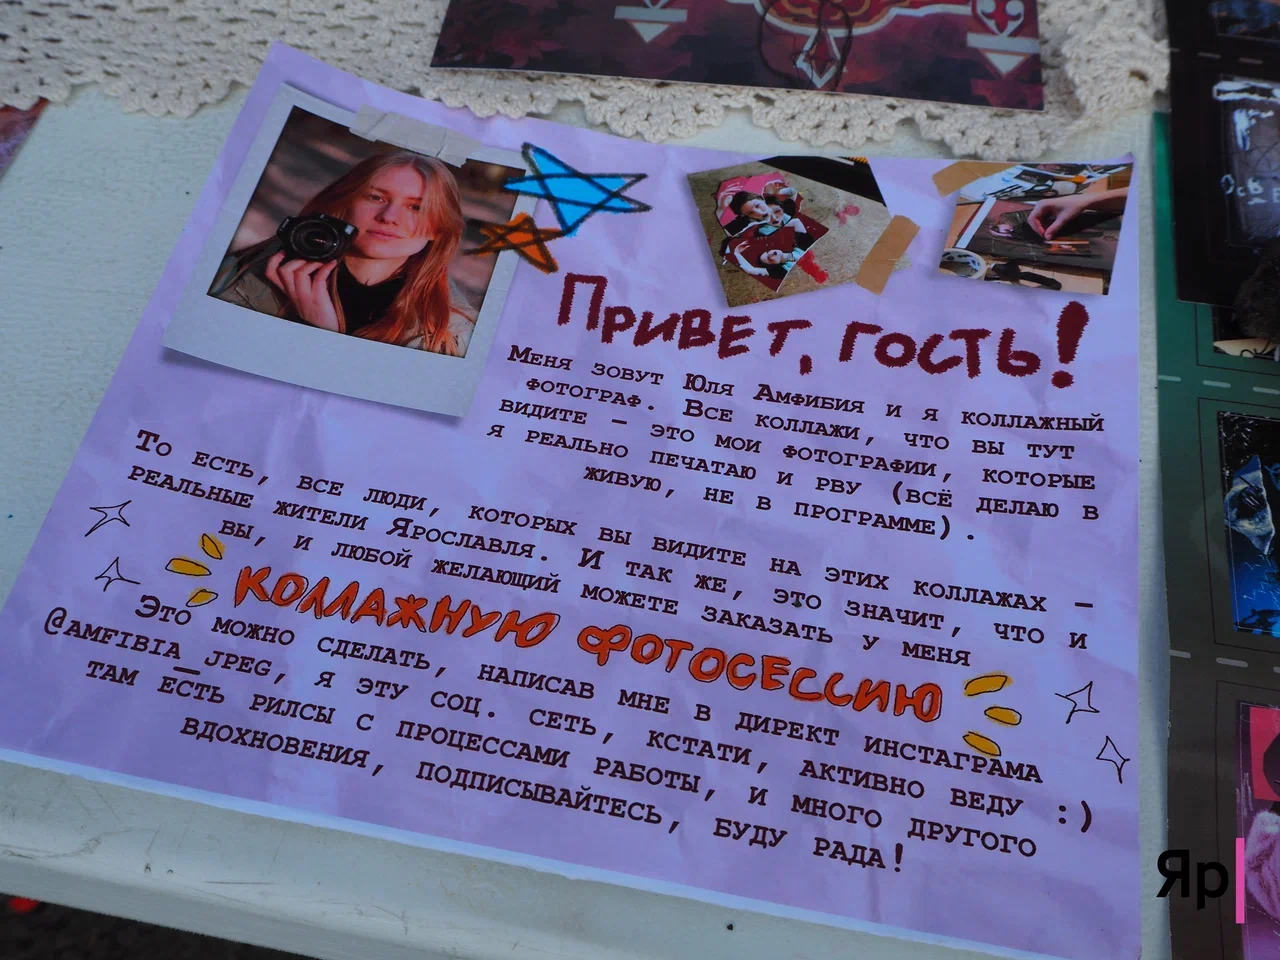 Привет, гость!
Меня зовут Юля Амфибия и я коллажный
фотограф. Все коллажи, что вы тут
видите — это мои фотографии, которые
я реально печатаю и рву (всё делаю в
живую, не в программе).
То есть, все люди, которых вы видите на этих коллажах —
реальные жители Ярославля. И так же, это значит, что и
вы, и любой желающий можете заказать у меня
коллажную фотосессию
Это можно сделать, написав мне в директ инстаграма
@amfibia_jpeg, я эту соц. сеть, кстати, активно веду :)
там есть рилсы с процессами работы, и много другого
вдохновения, подписывайтесь, буду рада!
Яр